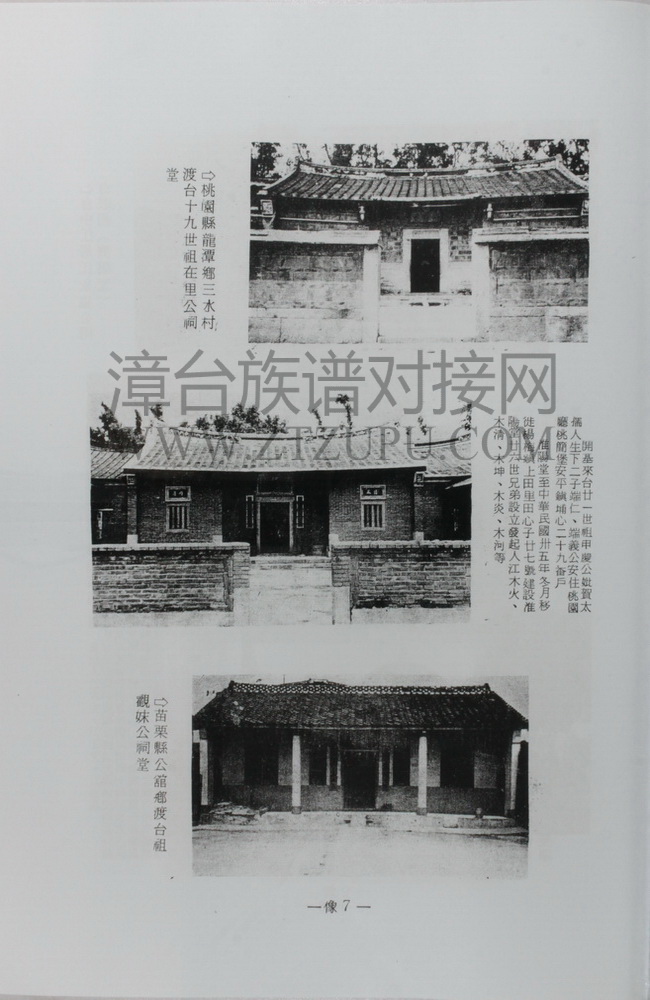 ⇨桃園縣龍潭鄉三水村
渡台十九世祖在里公祠
堂
漳台族谱对接网
WWW.ZTZUPU.COM
開基來台廿一世祖甲慶公妣賀太
儒人生下二子端仁、端義公安住桃園
廳桃簡堡安平鎮埔心二十九番戶
淮陽堂至中華民國卅五年冬月移
徙楊梅鎮上田里田心子廿七號建設淮
陽堂廿六世兄弟設立發起人江木火、
木清、木坤、木炎、木河等
⇨苗栗縣公館鄉渡台祖
觀妹公祠堂
—像7—